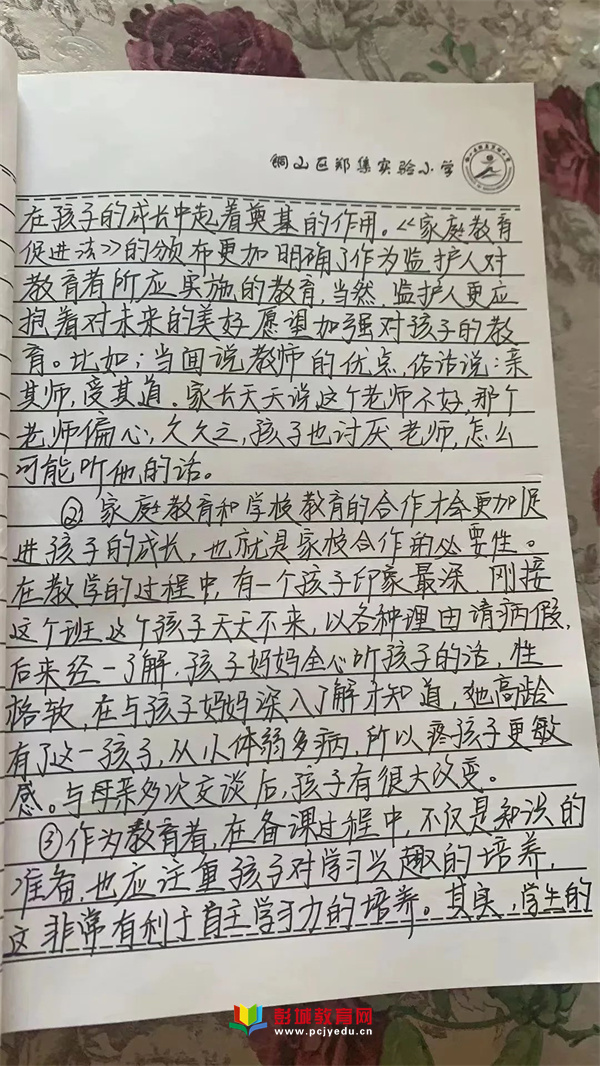 铜山区郑集实验小学
在孩子的成长中起着奠基的作用。《家庭教育
促进法》的颁布更加明确了作为监护人对
教育者所应实施的教育,当然,监护人更应
抱着对未来的美好愿望加强对孩子的教
育。比如:当面说教师的优点,俗话说:亲
其师,受其道。家长天天说这个老师不好,那个
老师偏心,久久之,孩子也讨厌老师,怎么
可能听他的话。
②家庭教育和学校教育的合作才会更加促
进孩子的成长,也就是家校合作的必要性。
在教学的过程中,有一个孩子印象最深,刚接
这个班这个孩子天天不来,以各种理由请病假,
后来经一了解,孩子妈妈全心听孩子的话,性
格软,在与孩子妈妈深入了解才知道,她高龄
有了这一孩子,从小体弱多病,所以疼孩子更敏
感。与母亲多次交谈后,孩子有很大改变。
③作为教育者,在备课过程中,不仅是知识的
准备,也应注重孩子对学习兴趣的培养,
这非常有利于自主学习力的培养。其实,学生的
彭城教育网
www.pcjyedu.cn